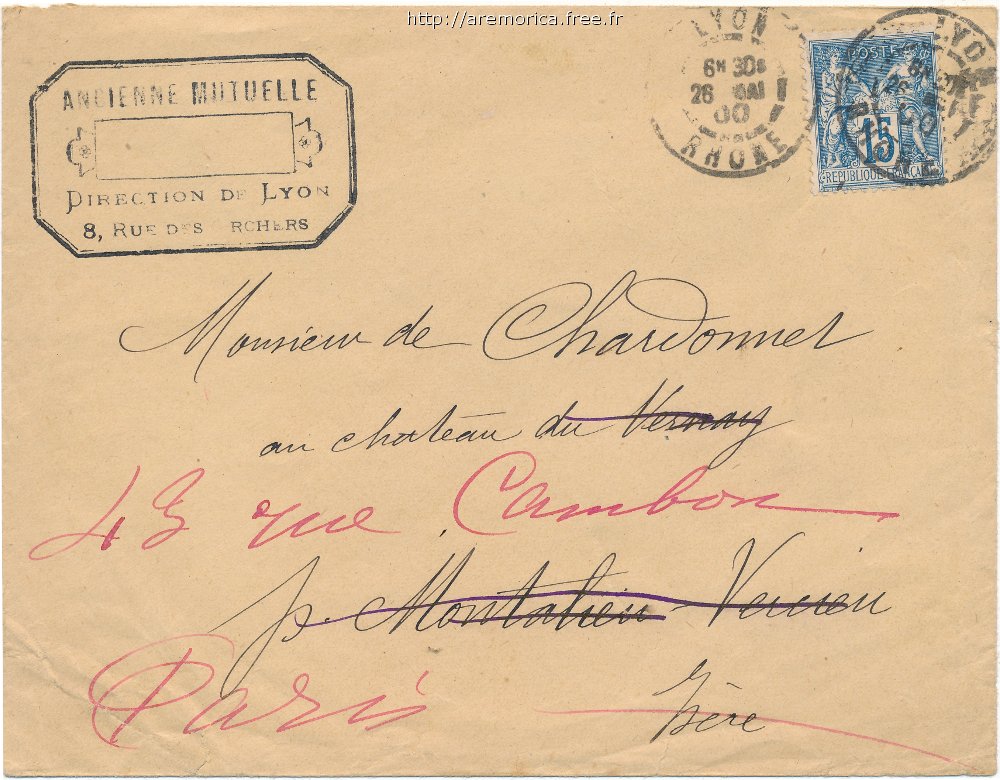 http://aremorica.free.fr
ANCIENNE MUTUELLE
DIRECTION DE LYON
8, RUE DES RCHERS
LYON
6H 30S
26 MAI
00
RHONE
POSTES
15
REPUBLIQUE FRANCAISE
LYON
Monsieur de Chardonnet
au chateau du Vernay
43 rue Cambon
p. Montalieu-Vercieu
Paris
Isère